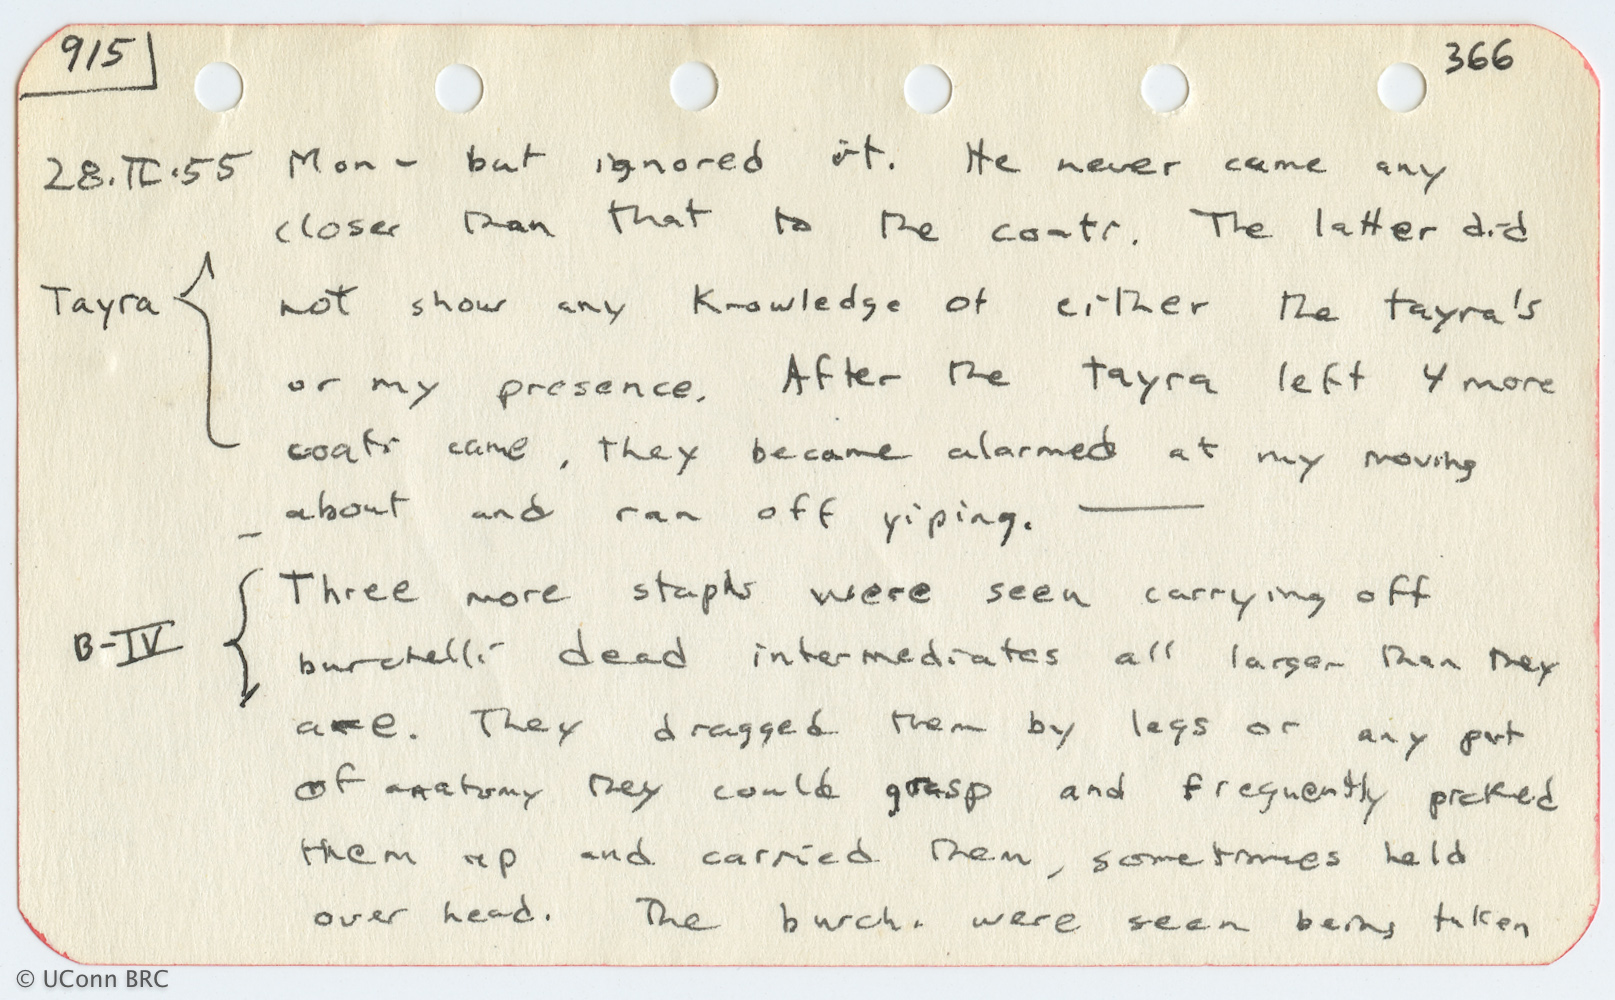 915
366
28.II.55 Mon - but ignored it. He never came any
closer than that to the coati. The latter did
Tayra not show any knowledge of either the tayra's
or my presence. After the tayra left 4 more
coatis came, they became alarmed at my moving
about and ran off yiping. —
Three more staphs were seen carrying off
B-IV burchelli dead intermediates all larger than they
are. They dragged them by legs or any part
of anatomy they could grasp and frequently picked
them up and carried them, sometimes held
over head. The burch. were seen being taken
© UConn BRC